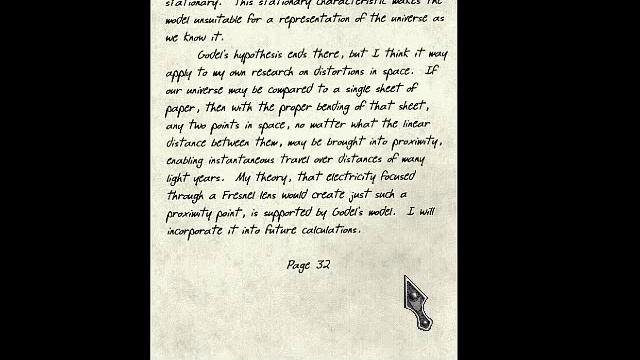 stationary. This stationary characteristic makes the
model unsuitable for a representation of the universe as
we know it.
Godel's hypothesis ends there, but I think it may
apply to my own research on distortions in space. If
our universe may be compared to a single sheet of
paper, then with the proper bending of that sheet,
any two points in space, no matter what the linear
distance between them, may be brought into proximity,
enabling instantaneous travel over distances of many
light years. My theory, that electricity focused
through a Fresnel lens would create just such a
proximity point, is supported by Godel's model. I will
incorporate it into future calculations.
Page 32